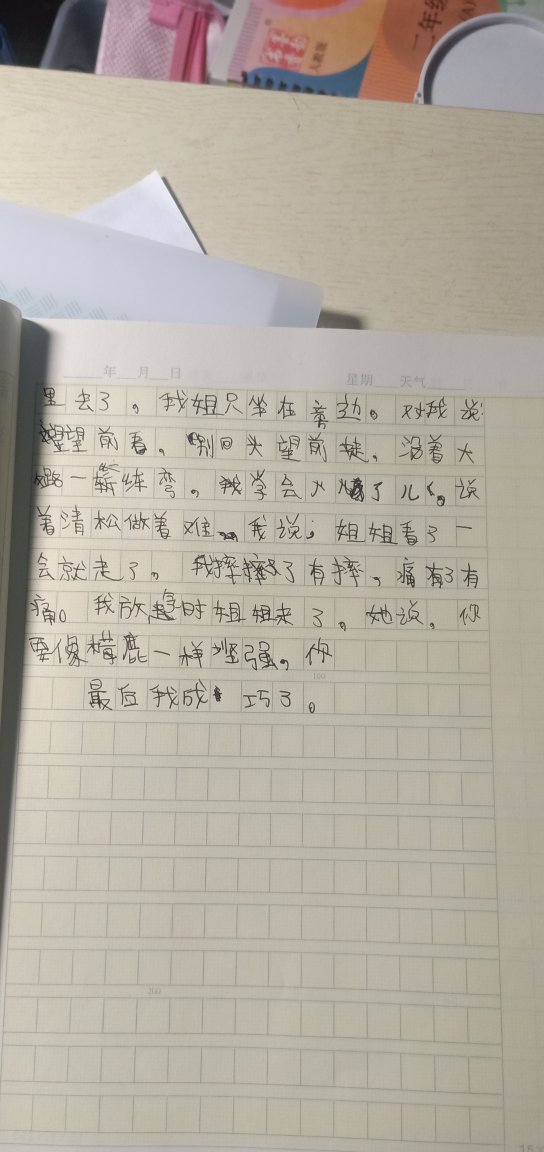 人教版
二年级
年 月 日 星期 天气
里去了。我姐只坐在旁边。对我说:
望前看。别回头望前
沿着大路一 练弯。我学会 了 儿。说
着清松做着难。我说；姐姐看了一
会就走了。我摔 了有摔，痛有了有
痛。我放弃时姐姐来了。她说。你
要像 鹿一样坚强。你
100
最后我成 工巧了。
200